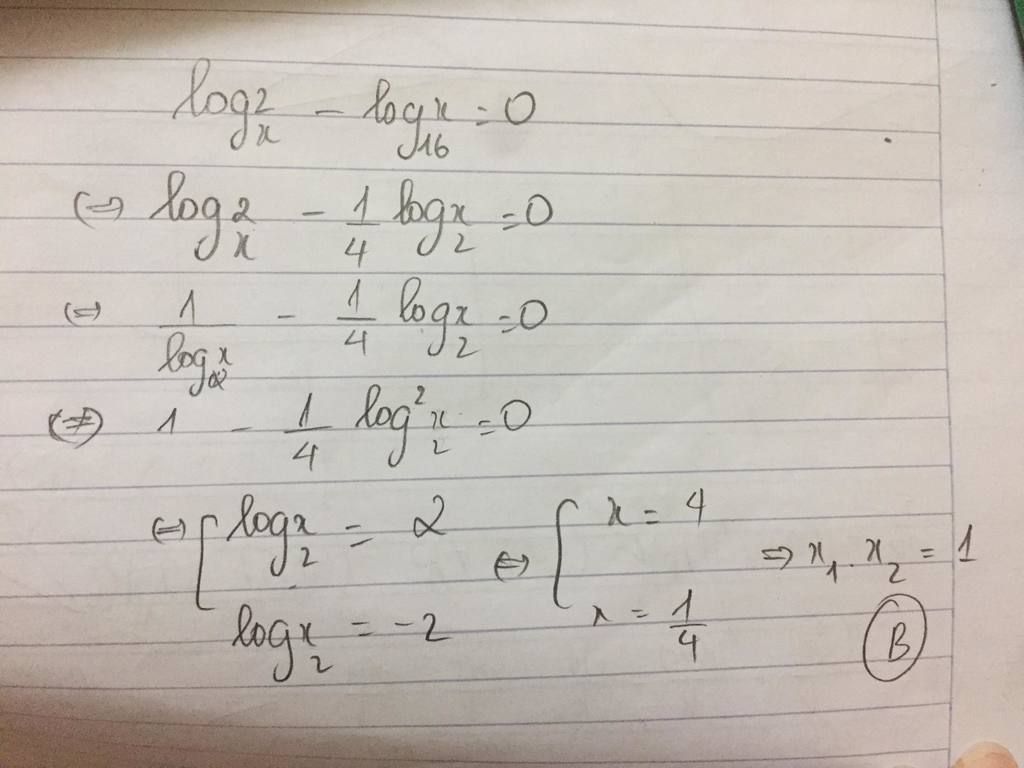 log_x 2 - log_16 x = 0
(=) log_x 2 - 1/4 log_2 x = 0
(=) 1/(log_2 x) - 1/4 log_2 x = 0
(≠) 1 - 1/4 log_2^2 x = 0
⇔ [ log_2 x = 2 ⇔ [ x = 4 ⇒ x_1 . x_2 = 1
log_2 x = -2 x = 1/4 B